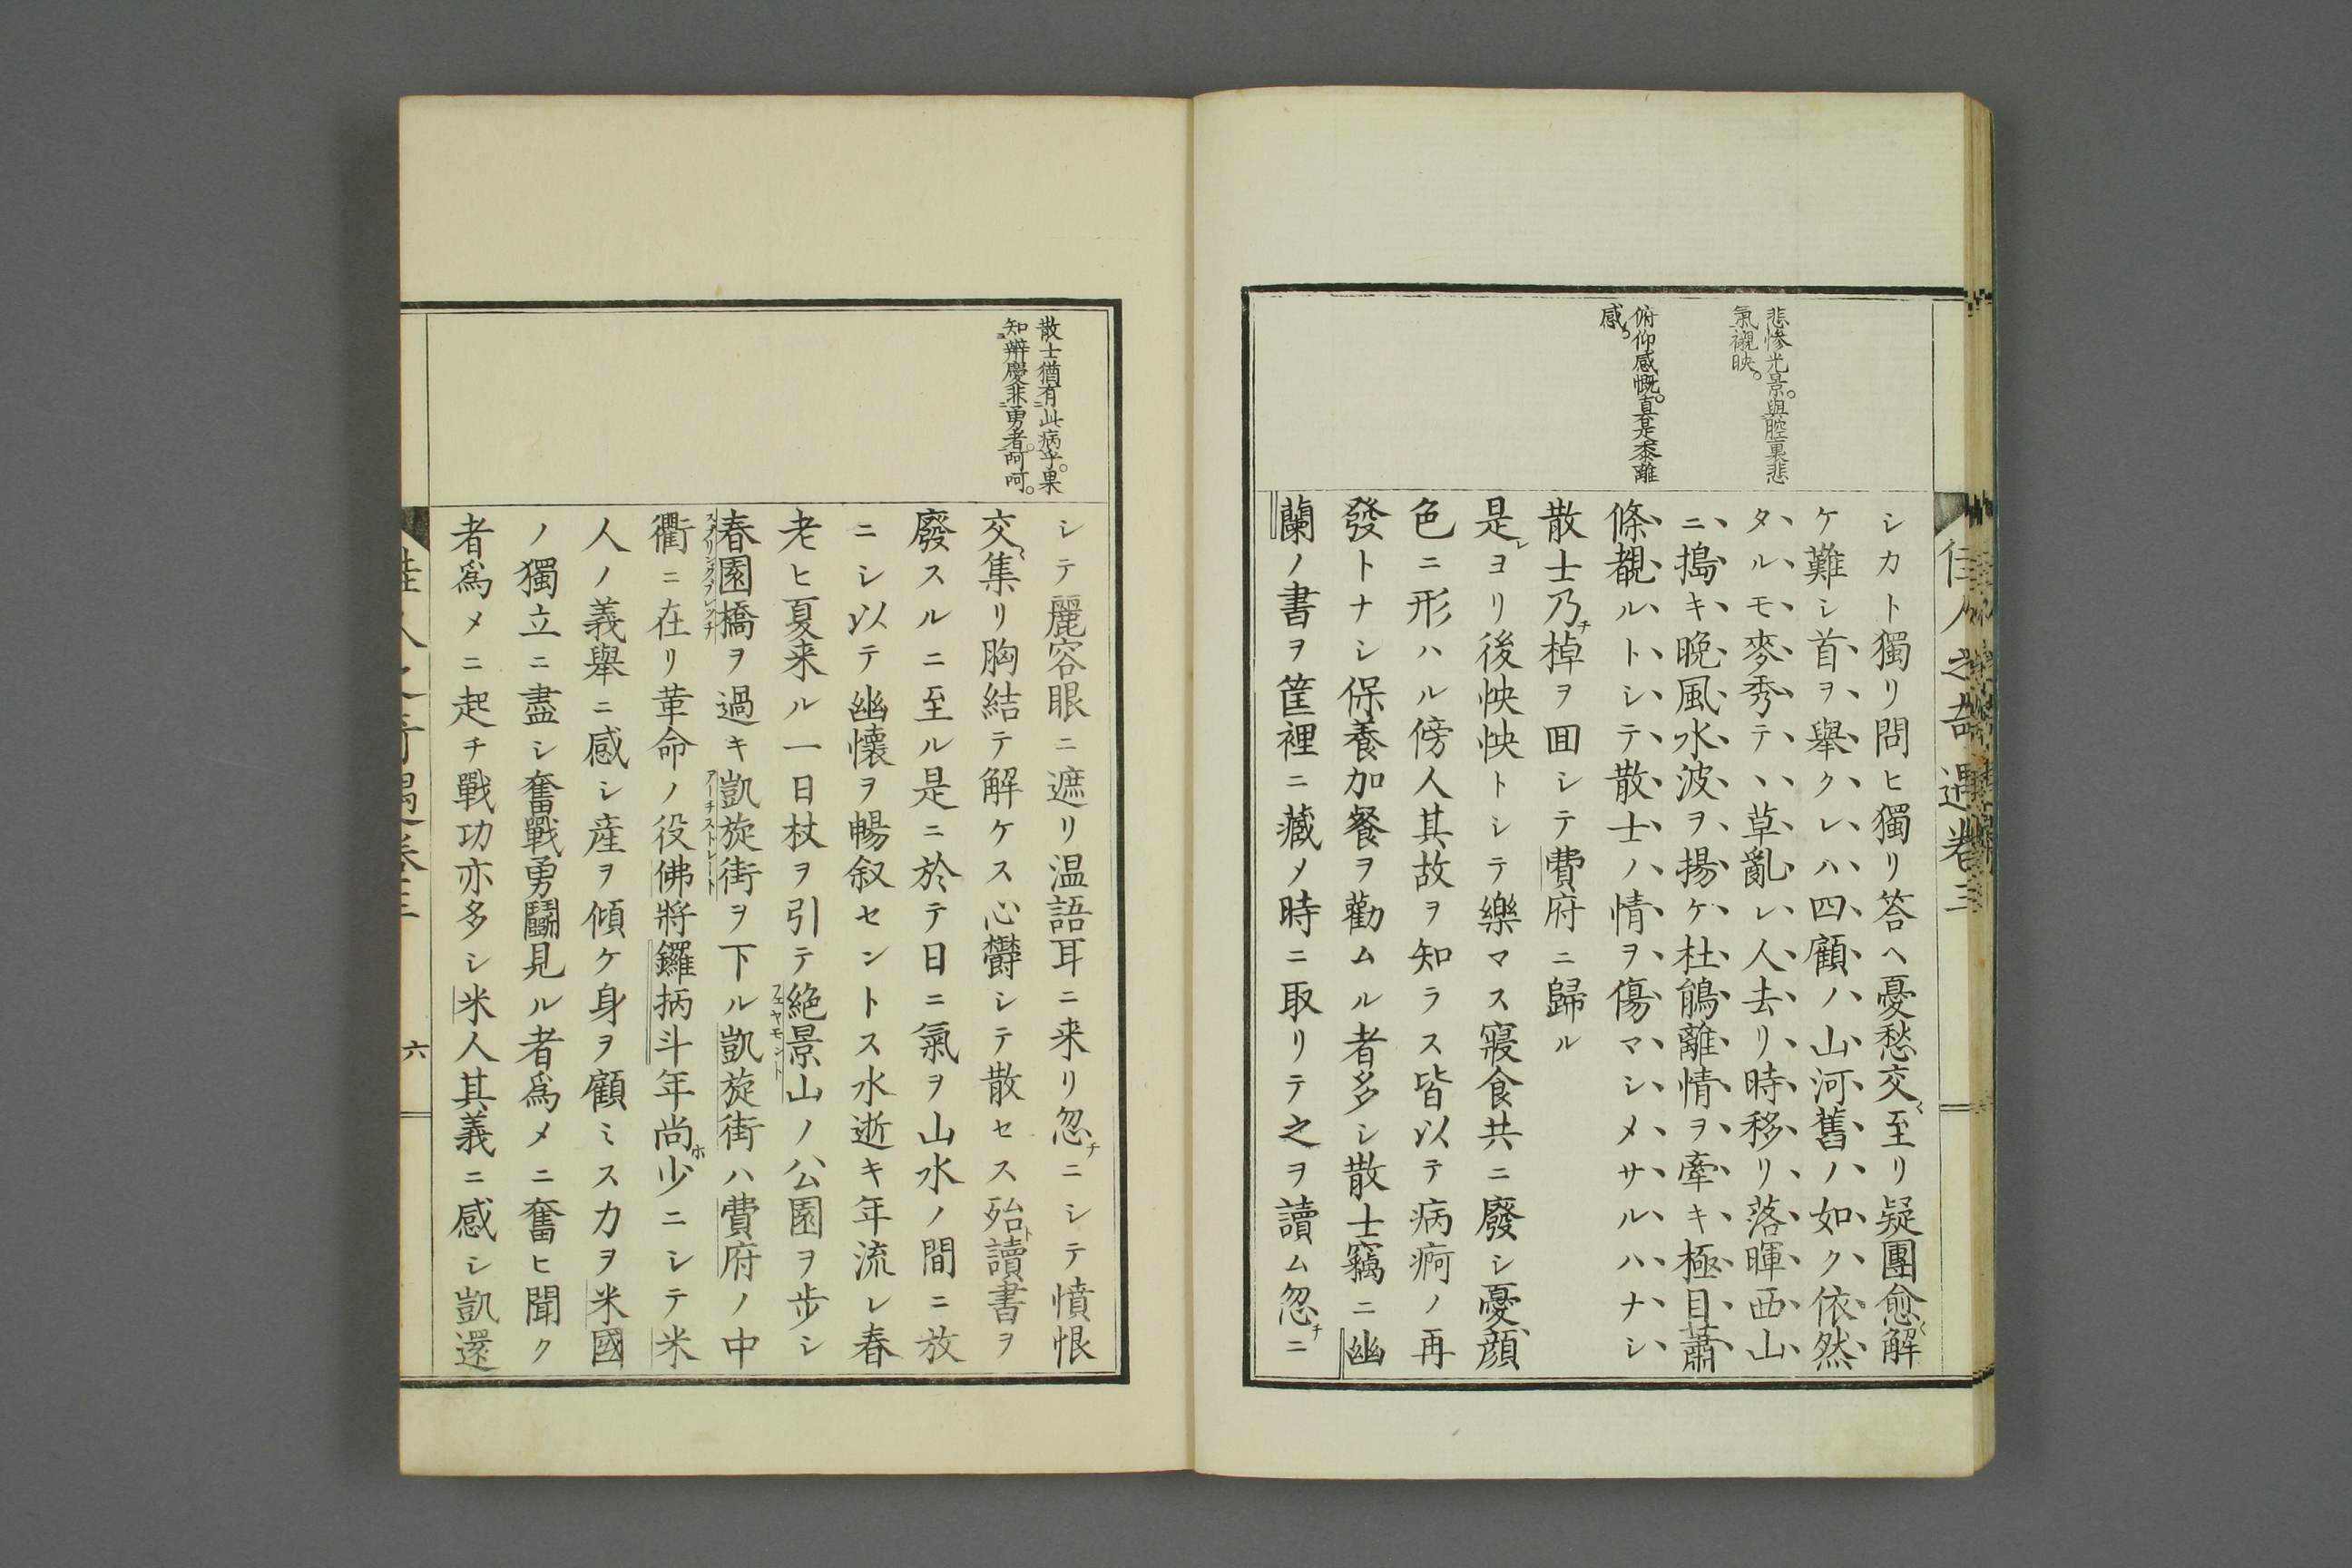 佳人之奇遇卷三
悲慘光景。與腔裏悲
氣襯映。
俯仰感慨。真是黍離
感。
シカト獨リ問ヒ獨リ答ヘ憂愁交〻至リ疑團愈〻解
ケ難シ首ヲ舉クレハ四顧ノ山河舊ノ如ク依然
タルモ麥秀テ丶草亂レ人去リ時移リ落暉西山
ニ搗キ晩風水波ヲ揚ケ杜鵑離情ヲ牽キ極目蕭
條覩ルトシテ散士ノ情ヲ傷マシメサルハナシ
散士乃チ棹ヲ囬シテ費府ニ歸ル
是レヨリ後怏怏トシテ樂マス寢食共ニ廢シ憂顔
色ニ形ハル傍人其故ヲ知ラス皆以テ病痾ノ再
發トナシ保養加餐ヲ勸ムル者多シ散士竊ニ幽
蘭ノ書ヲ筐裡ニ藏メ時ニ取リテ之ヲ讀ム忽チニ
散士猶有此病乎。果
知辨慶非勇者。呵呵。
シテ麗容眼ニ遮リ温語耳ニ来リ忽チニシテ憤恨
交〻集リ胸結テ解ケス心欝シテ散セス殆ト讀書ヲ
廢スルニ至ル是ニ於テ日ニ氣ヲ山水ノ間ニ放
ニシ以テ幽懐ヲ暢叙セントス水逝キ年流レ春
老ヒ夏来ル一日杖ヲ引テ絶景山フェヤモントノ公園ヲ歩シ
春園橋スプリングブレッチヲ過キ凱旋街アーチストレートヲ下ル凱旋街ハ費府ノ中
衢ニ在リ革命ノ役佛將鑼柄斗年尚ホ少ニシテ米
人ノ義舉ニ感シ産ヲ傾ケ身ヲ顧ミス力ヲ米國
ノ獨立ニ盡シ奮戰勇鬪見ル者爲メニ奮ヒ聞ク
者爲メニ起チ戰功亦多シ米人其義ニ感シ凱還
佳人之奇遇卷三
六